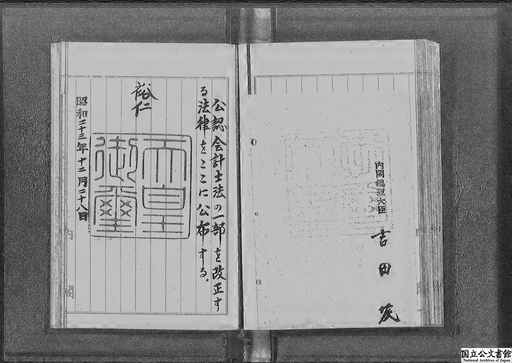 公認会計士法の一部を改正す
る法律をここに公布する。
裕仁
天皇御璽
昭和二十三年十二月二十八日
内閣総理大臣
吉田茂
国立公文書館
National Archives of Japan